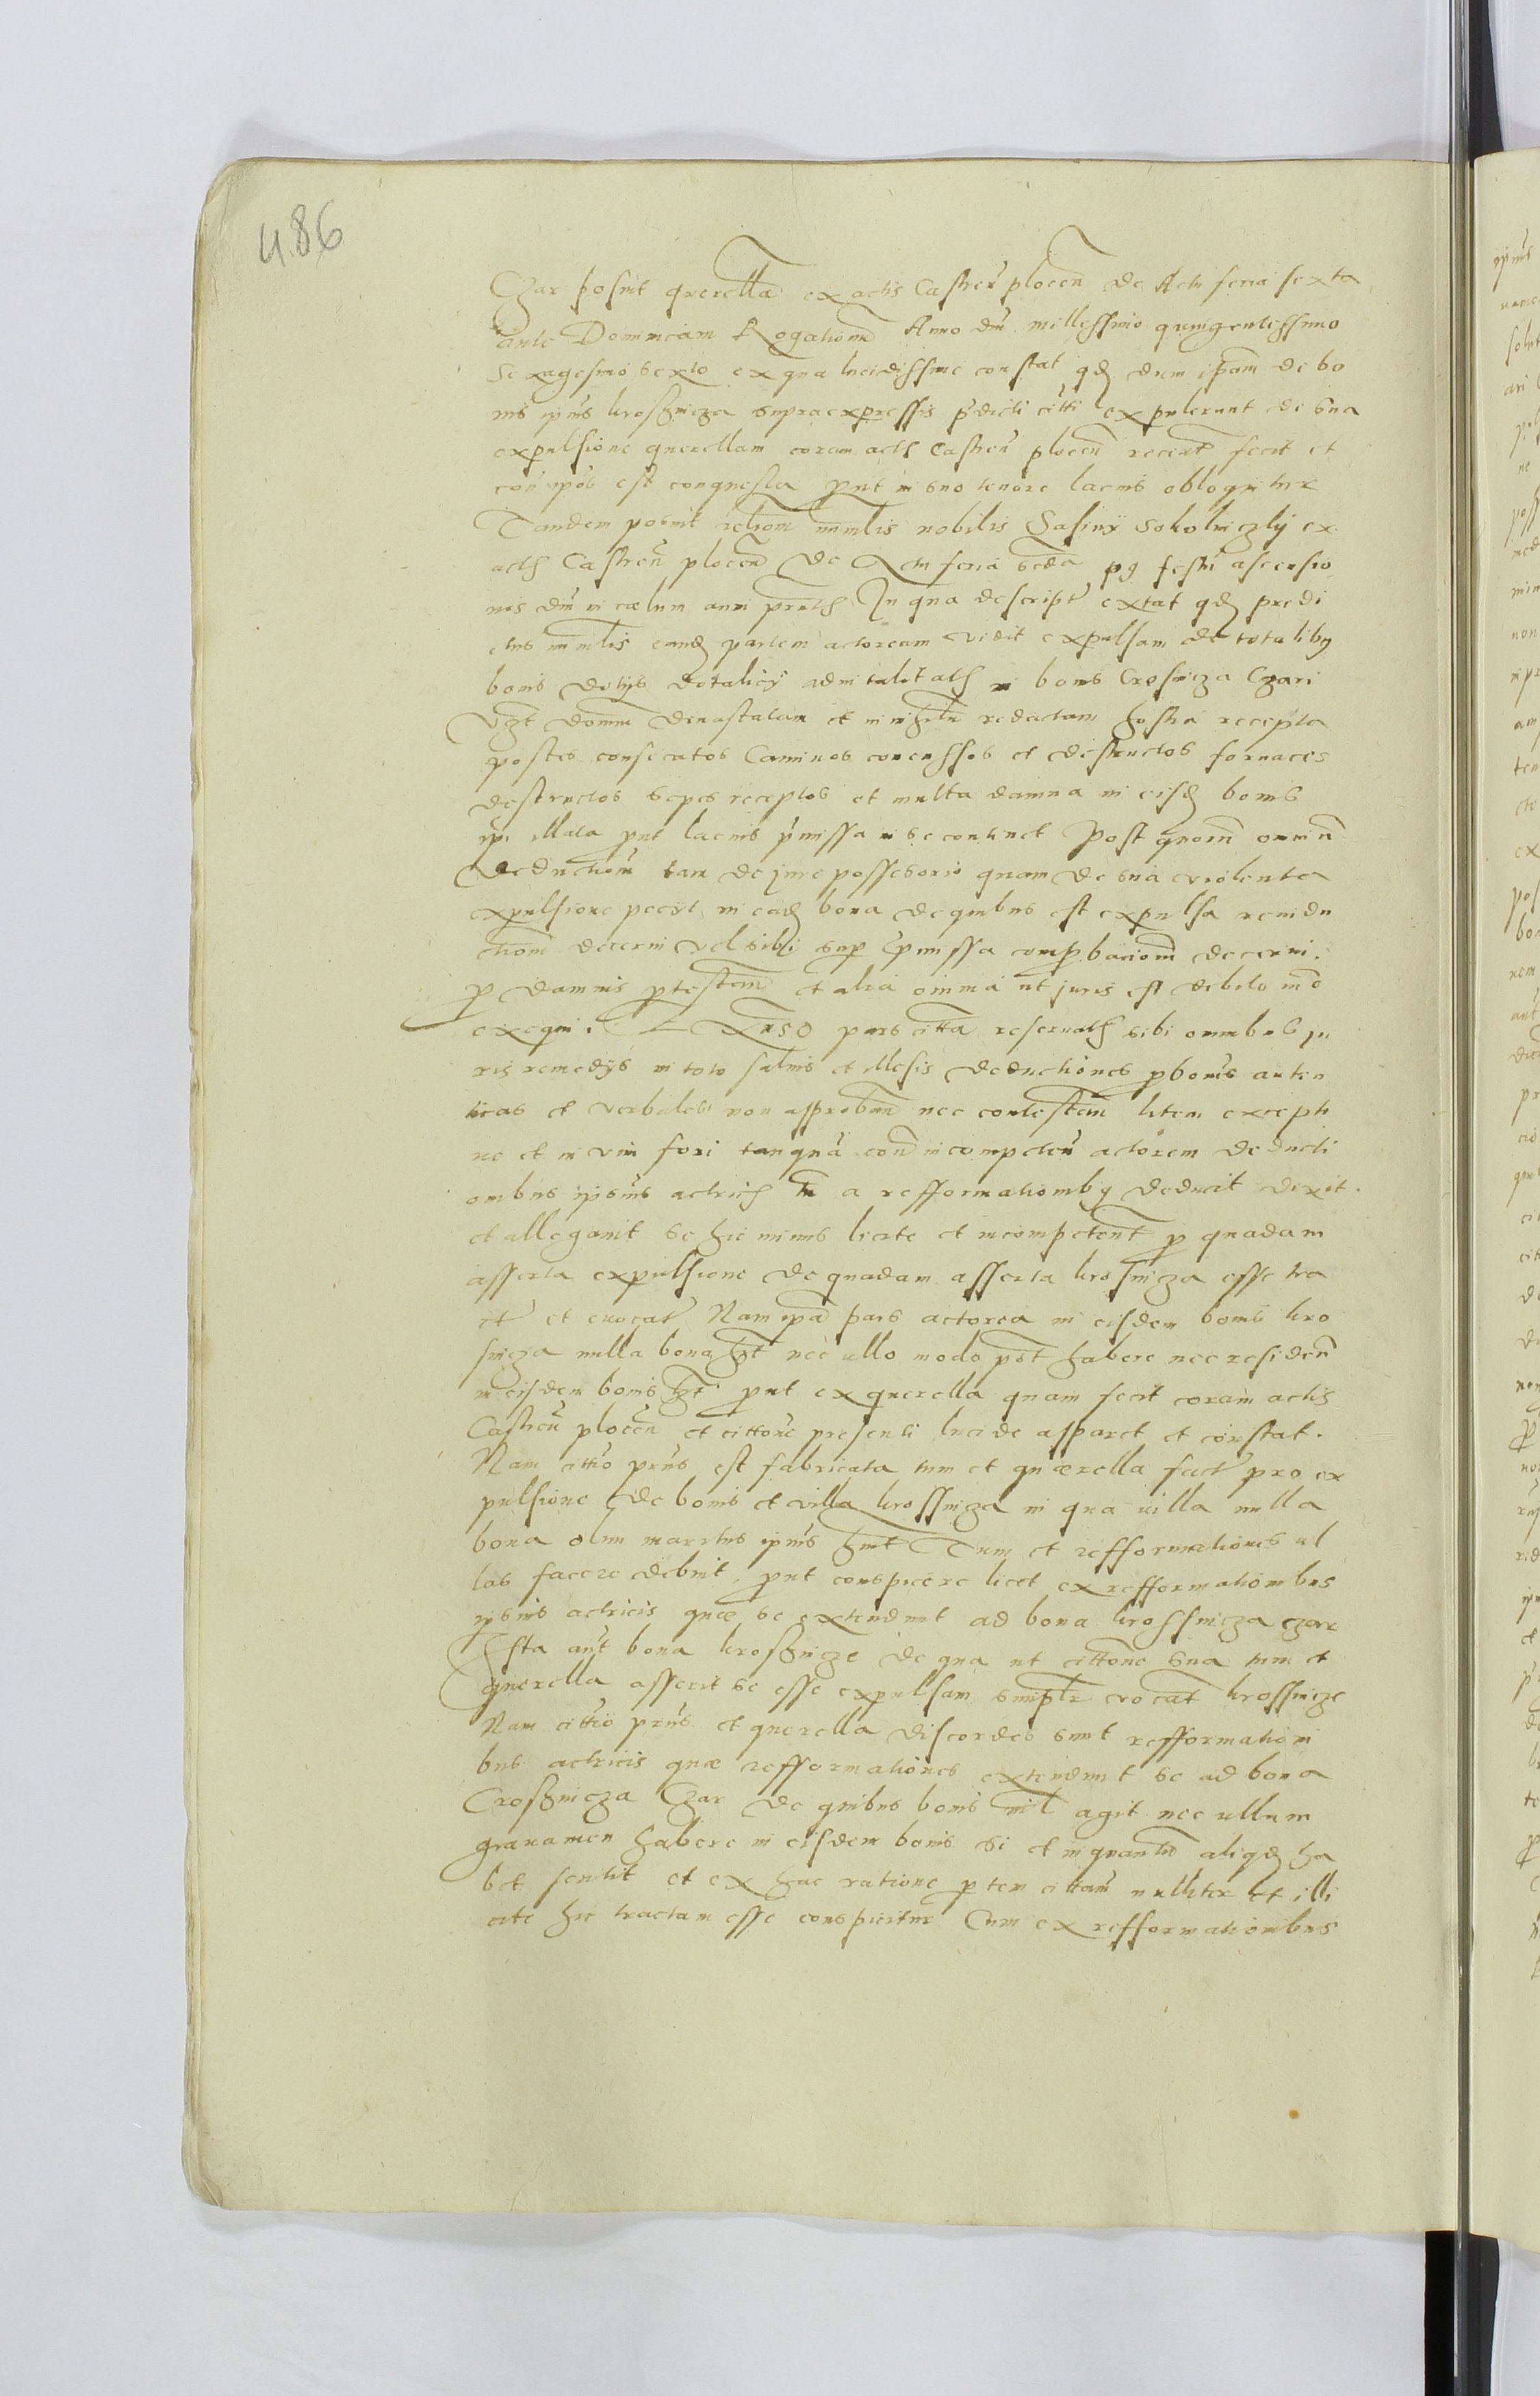 486
Czar posuit querellam ex actis Castren plocen De Actu feria sexta
ante Dominicam Rogationū Anno dni millessimo quingentessimo
Sexagesimo sexto ex qua lucidissime constat qd dum ipsam de bo
nis ipius krosznicza supra expressis pdicti citti expulerunt de sua
expulsione querellam coram actis Castren plocen recent fecit et
con ipos est conquesta prut in suo tenore lacius obloquitur
Tandem posuit relhom mnlis nobilis Sokolniczky ex
actis Castren plocen De Actu feria scda pq festi ascensio
nis dni in cælum anni prntis In qua descript extat qd predi
ctus mnlis eand partem actoream vidit expulsam de totalibq
bonis dotalicy in bonis Crosnicza Czari
vzt domum devastatam et in nihilu redactam hostia recepta
postes consecatos Caminos concussos et destructos fornaces
destructos sepes receptos et multa damna in eisd bonis
ipi illata prut lacius pmissa in se continet Post quorū omniū
deductionū tam de jure possesorio quam de sua violenta
expulsione pecyt in ead bona de quibus est expulsa reindu
ctiom decerni vel sibi sup pmissa comprobaciom decerni.
p damnis ptestam et alia omnia ut juris est debito mō
exequi. Exaso pars citta reservatis sibi omnibus ju
ris remedys in toto salvis et illesis deductiones pbonis auten
ticas et verbales non approban nec contestan litem excepti
ve et in vim fori tanqua con incompeten actorem deducti
onibus ipsius actricis tu a refformationibq deducit dixit.
et allegavit se hic minus licite et incompetent p quadam
asserta expulsione de quadam asserta krosnicza esse tra
ct et evocat Nam ipa pars actorea in eisdem bonis kro
snicza nulla bona hzt nec ullo modo pōt habere nec residen
in eisdem bonis hzt prut ex querella quam fecit coram actis
Castren plocen et cittone presenti lucide apparet et constat.
Nam cittio prns est fabricata tum et quærella fact pro ex
pulsione de bonis et villa krossnicza in qua villa nulla
bona olim maritus ipius huit Tum et refformationes ul
las facere debuit, prut conspicere licet ex refformationibus
ipsius actricis quæ se extendunt ad bona krossnicza czar
Ista aut bona krosznicze de qua ut cittone sua tum et
querella asserit se esse expulsam simplr vocat krossnicze
Nam cittio prns et querella discordes sunt refformationi
bus actricis quæ refformationes extendunt se ad bona
Crosznicza Czar de quibus bonis nil agit nec ullum
gravamen habere in eisdem bonis si et in quantu aliqd ha
bet sentit et ex hac ratione ptem cittam nulliter et illi
cite hic tractam esse conspicitur Cum ex refformationibus